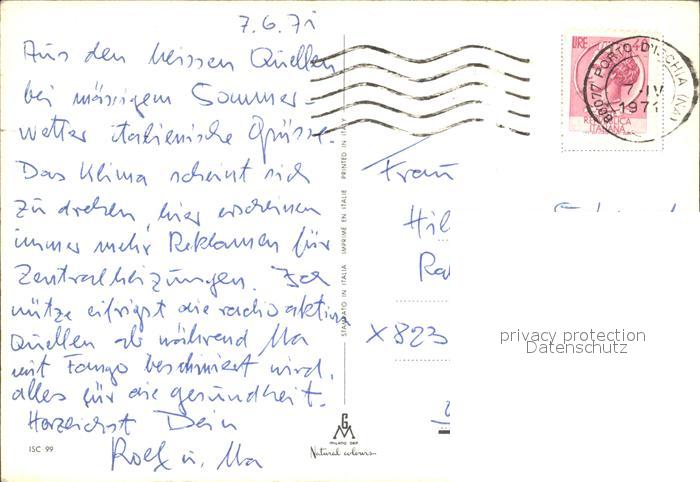 7.6.71
Aus den heissen Quellen
bei mässigem Sommer-
wetter italienische Grüsse.
Das Klima scheint sich
zu drehen, hier erscheinen
immer mehr Reklamen für
Zentralheizungen. Ich
nütze eifrigst die radioaktiven
Quellen ab während Ma
mit Fango beschmiert wird,
alles für die gesundheit.
Herzlichst Dein
Rolf u. Ma
ISC 99
STAMPATO IN ITALIA IMPRIMÉ EN ITALIE PRINTED IN ITALY
GM
MILANO DEP.
Natural colours
LIRE 40
REPUBBLICA
ITALIANA
80077 PORTO D'ISCHIA (NA)
1971
Frau
Hil
X 823
privacy protection
Datenschutz